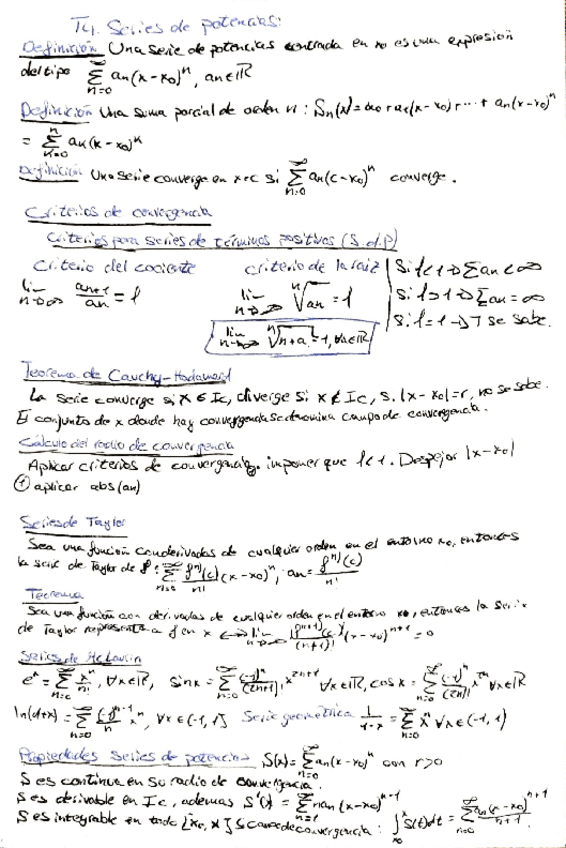 T4. Series de potencias:
Definición Una serie de potencias centrada en x₀ es una expresión
del tipo ∑_{n=0}^{∞} an(x-x₀)^n, an∈ℝ
Definición Una suma parcial de orden n: Sn(x)=a₀+a₁(x-x₀)+···+an(x-x₀)^n
= ∑_{k=0}^{n} ak(x-x₀)^k
Definición Una serie converge en x=c si ∑_{n=0}^{∞} an(c-x₀)^n converge.
Criterios de convergencia
Criterios para series de términos positivos (S.d.P)
Criterio del cociente
lim_{n→∞} an+1/an = l
criterio de la raiz
lim_{n→∞} ⁿ√an = l
lim_{n→∞} ⁿ√n+a = 1, ∀a∈ℝ
Si l<1→∑an<∞
Si l>1→∑an=∞
Si l=1→? se sabe.
Teorema de Cauchy-Hadamard
La serie converge si x∈Ic, diverge si x∉Ic, si |x-x₀|=r, no se sabe.
El conjunto de x donde hay convergencia se denomina campo de convergencia.
Cálculo del radio de convergencia
Aplicar criterios de convergencia, imponer que l<1. Despejar |x-x₀|
① aplicar abs(an)
Series de Taylor
Sea una función con derivadas de cualquier orden en el entorno x₀, entonces
la serie de Taylor de f: ∑_{n=0}^{∞} f^{n)}(c)/n! (x-x₀)^n, an= f^{n)}(c)/n!
Teorema
Sea una función con derivadas de cualquier orden en el entorno x₀, entonces la serie
de Taylor representa a f en x ⟺ lim_{n→∞} f^{n+1)}(c)/(n+1)! (x-x₀)^{n+1} = 0
Series de McLaurin
e^x = ∑_{n=0}^{∞} x^n/n!, ∀x∈ℝ, sinx = ∑_{n=0}^{∞} (-1)^n/(2n+1)! x^{2n+1} ∀x∈ℝ, cos x = ∑_{n=0}^{∞} (-1)^n/(2n)! x^{2n} ∀x∈ℝ
ln(1+x) = ∑_{n=0}^{∞} (-1)^{n-1}/n x^n, ∀x∈(-1,1] Serie geométrica 1/1-x = ∑_{n=0}^{∞} x^n ∀x∈(-1,1)
Propiedades series de potencias S(x) = ∑_{n=0}^{∞} an(x-x₀)^n con r>0
S es continua en su radio de convergencia.
S es derivable en Ic, ademas S'(x) = ∑_{n=1}^{∞} nan(x-x₀)^{n-1}
S es integrable en todo [x₀,x] ⊆ convergencia: ∫_{x₀}^{x} S(t)dt = ∑_{n=0}^{∞} an(x-x₀)^{n+1}/n+1.